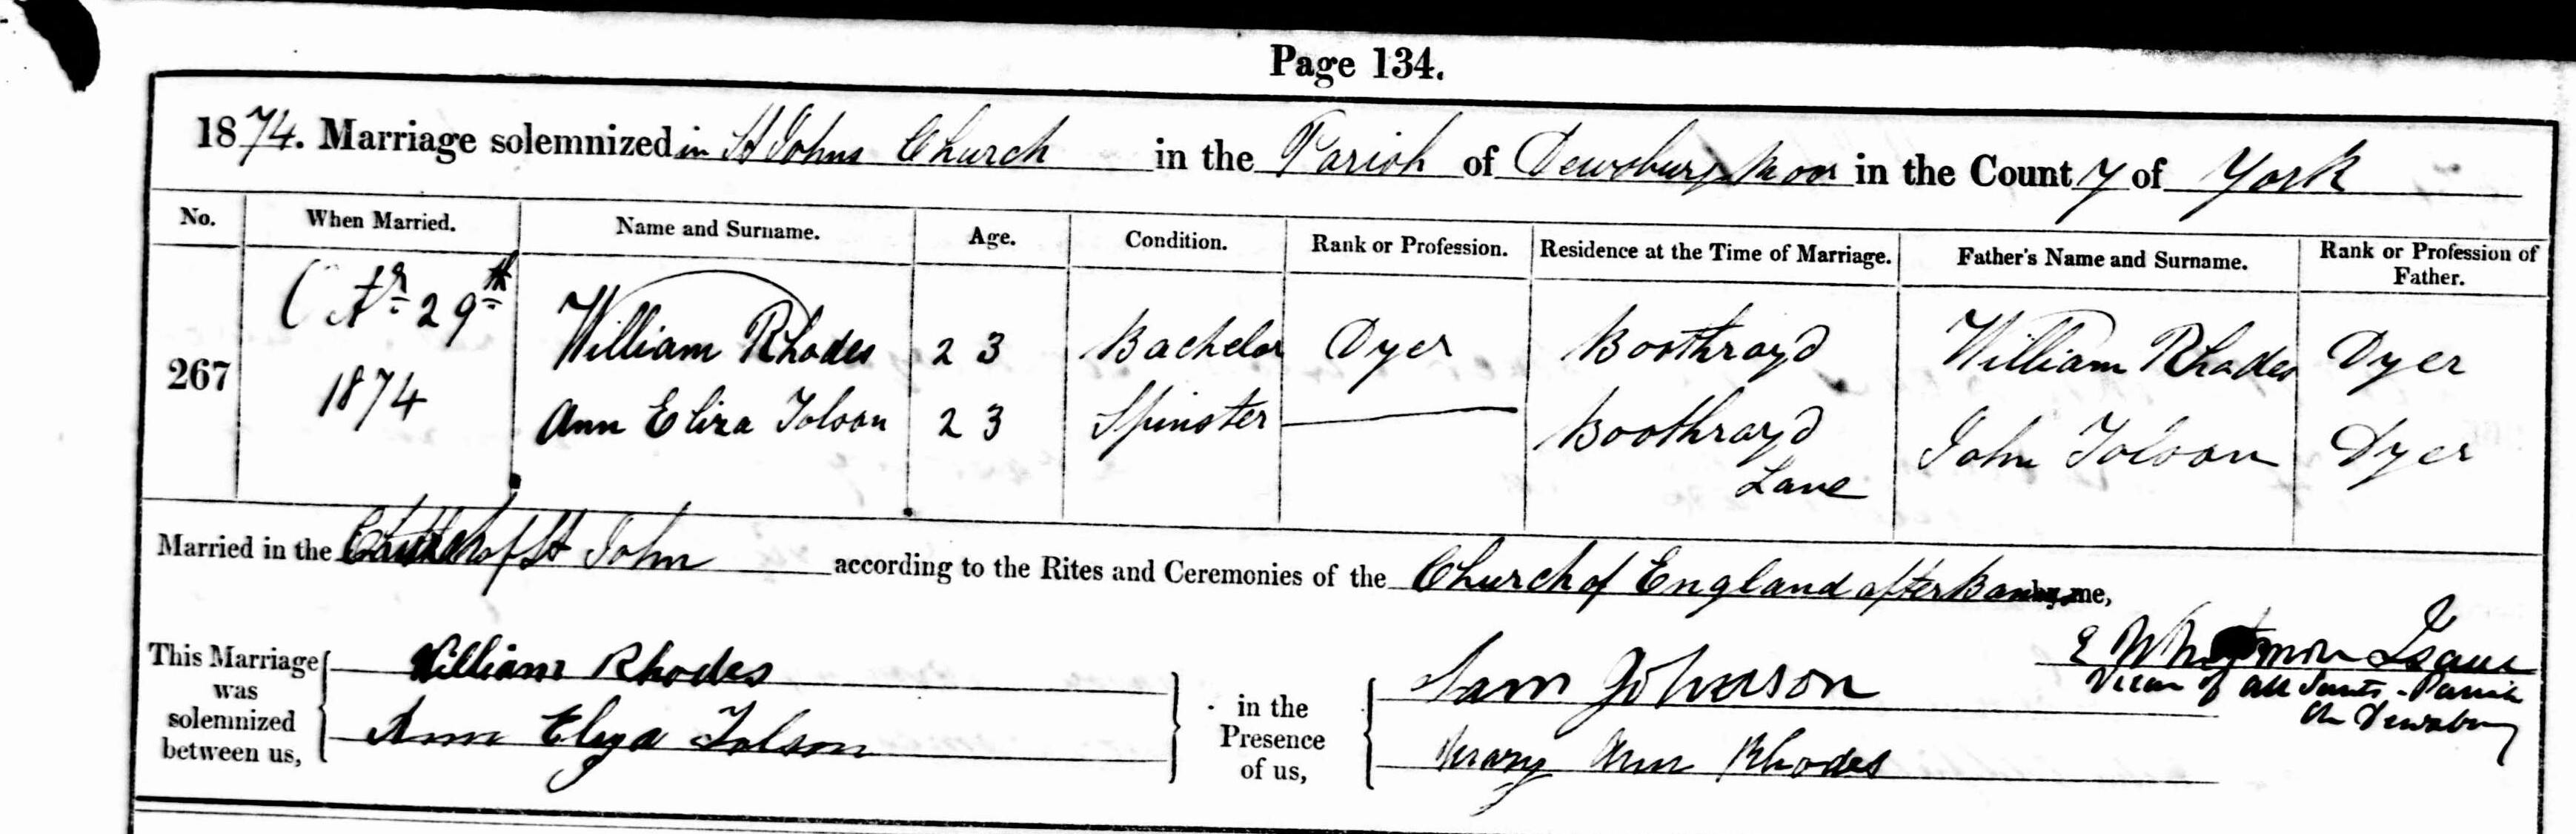 Page 134.
1874. Marriage solemnized in St Johns Church in the Parish of Dewsbury Moor in the County of York
No. When Married. Name and Surname. Age. Condition. Rank or Profession. Residence at the Time of Marriage. Father's Name and Surname. Rank or Profession of Father.
267 29th 1874
William Rhodes 23 Bachelor Dyer Boothroyd William Rhodes Dyer
Ann Eliza Tolson 23 Spinster Boothroyd Lane John Tolson Dyer
Married in the Church of St John according to the Rites and Ceremonies of the Church of England after Banns by me,
This Marriage was solemnized between us, William Rhodes
Ann Eliza Tolson
in the Presence of us, Sam
Mary Ann Rhodes
E
Vicar of All Saints - Parish
Ch Dewsbury